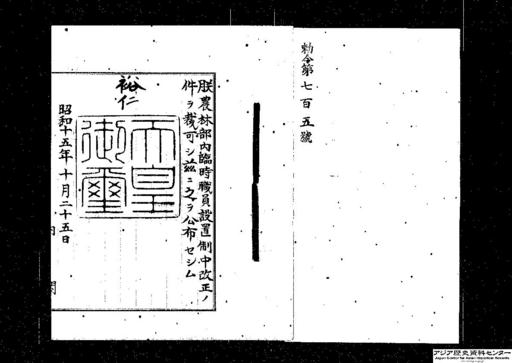 勅令第七百五號
朕農林部內臨時職員設置制中改正ノ
件ヲ裁可シ茲ニ之ヲ公布セシム
裕仁
天皇
御璽
昭和十五年十月二十五日
内閣
アジア歴史資料センター
Japan Center for Asian Historical Records